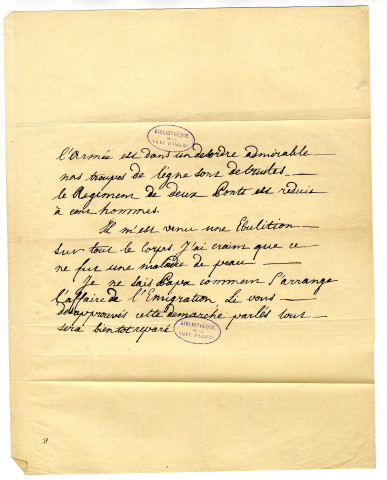 BIBLIOTHÈQUE
DE LA
VILLE D'ANGERS
l'Armée est dans un desordre admirable
nos troupes de ligne sont detruites
le Regiment de deux Ponts est reduis
à cent hommes.
Il m'est venu une Ebulition
sur tout le corps. J'ai craim que ce
ne fut une maladie de peau
Je ne sais Papa commen s'arrange
l'affaire de l'Emigration. Si vous
desapprouvés cette demarche parlés tout
sera bientot reparé
BIBLIOTHÈQUE
DE LA
VILLE D'ANGERS